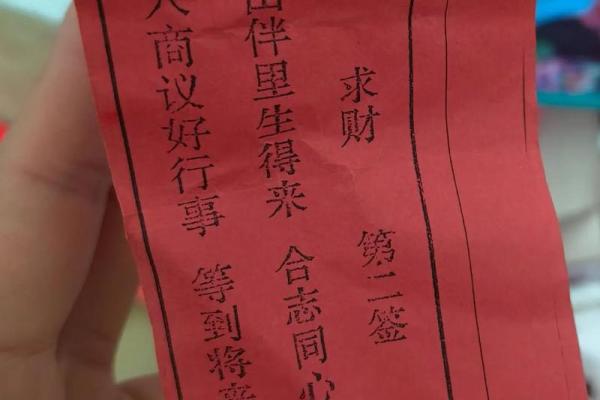 求财 第二签
伴里生得来 合志同心
商议好行事 等到将